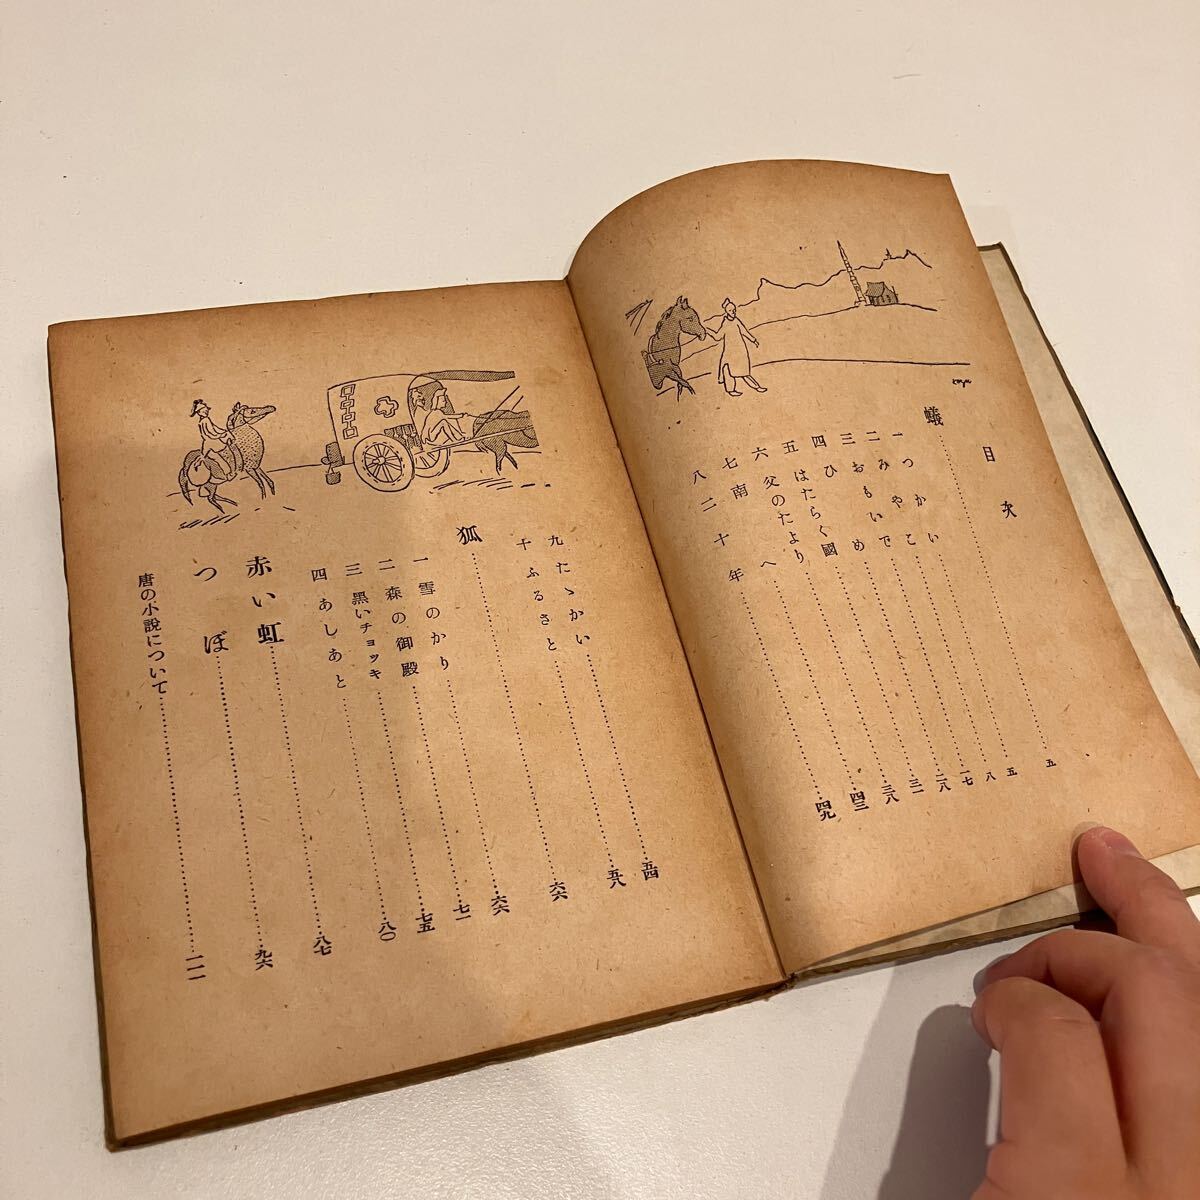 目次
蟻……五
一 つかい……五
二 みやこ……八
三 おもいで……一七
四 ひめ……二八
五 はたらく國……三一
六 父のたより……三八
七 南へ……四三
八 二十年……四九
九 たゝかい……五四
十 ふるさと……五八
狐……六六
一 雪のかり……六六
二 森の御殿……七一
三 黑いチョッキ……七五
四 あしあと……八〇
赤い虹……八七
つぼ……九六
唐の小說について……一一一